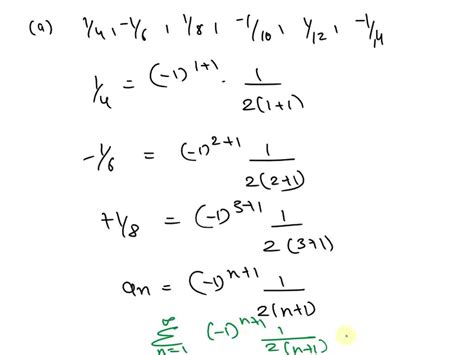 (a) 1/4, -1/6, 1/8, -1/10, 1/12, -1/14
1/4 = (-1)^{1+1} · 1/2(1+1)
-1/6 = (-1)^{2+1} 1/2(2+1)
+1/8 = (-1)^{3+1} 1/2(3+1)
an = (-1)^{n+1} 1/2(n+1)
∞∑n=1 (-1)^{n+1} 1/2(n+1)